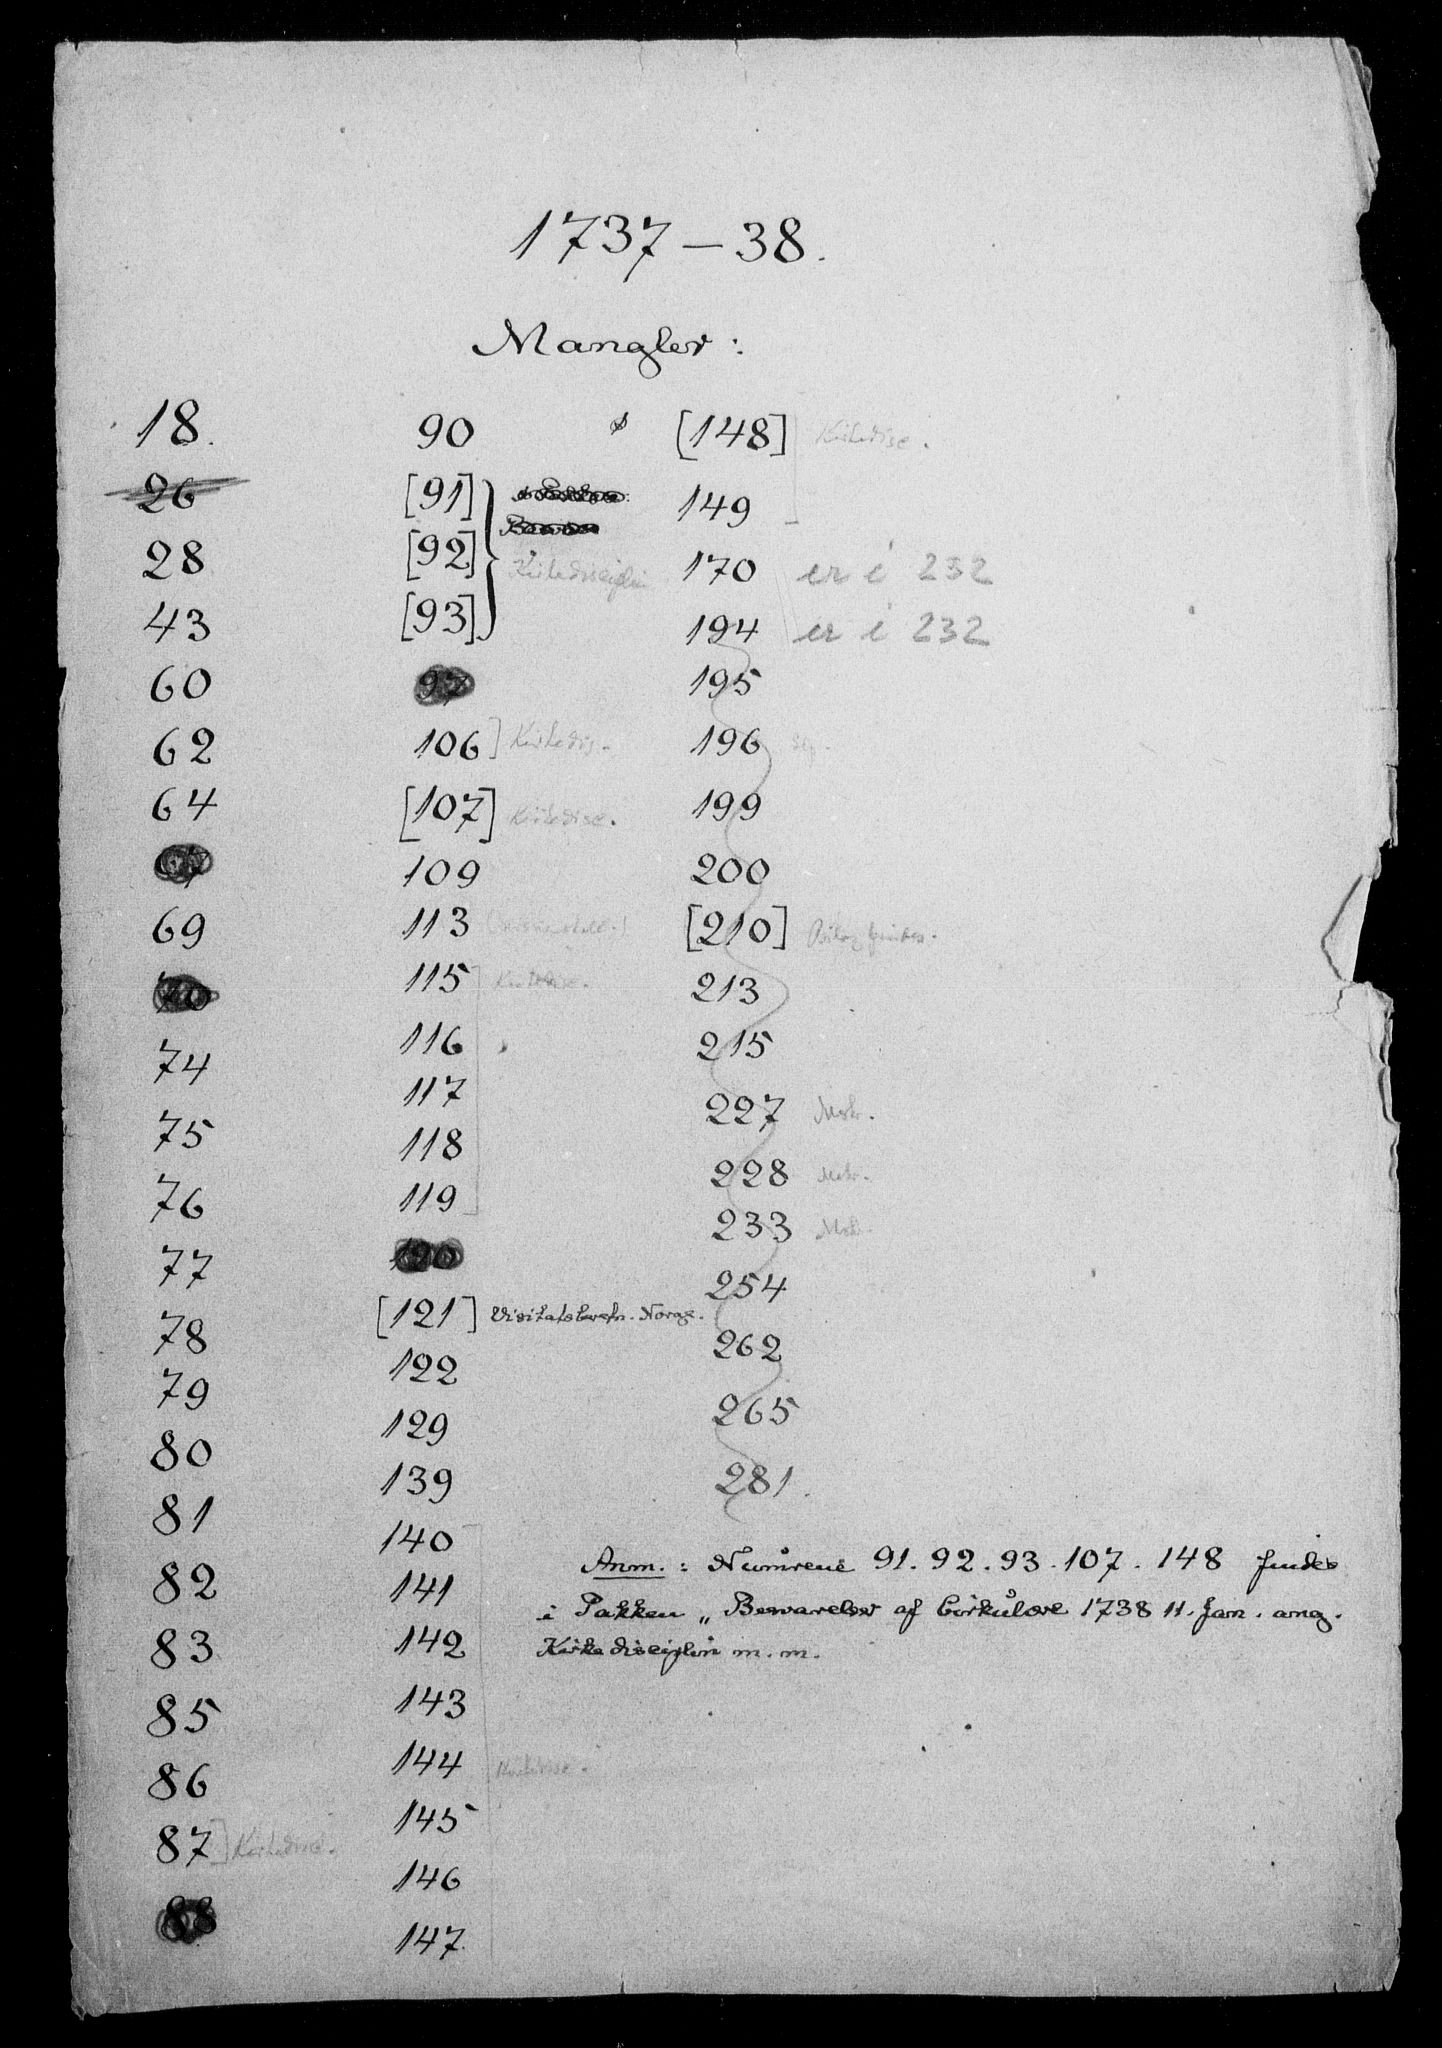 1737 – 38.
Mangler:
18.
26
28
43
60
62
64
67
69
70
74
75
76
77
78
79
80
81
82
83
85
86
87] Kirkedisc.
88
90
[91]
[92]
[93]
Kirkedisciplin
97
106] Kirkedis.
[107] Kirkedisc.
109
113
115 Kirkedisc.
116
117
118
119
120
[121] Visitatsberetn. Norge.
122
129
139
140
141
142
143
144 Kirkedisc.
145
146
147.
[148] Kirkedisc.
149
170 er i 232
194 er i 232
195
196
199
200
[210] Bilag findes.
213
215
227
228
233
254
262
265
281.
Anm.: Numrene 91. 92. 93. 107. 148 findes
i Pakken „Besvarelser af Cirkulære 1738 11. Jan. ang.
Kirkedisciplin m. m.